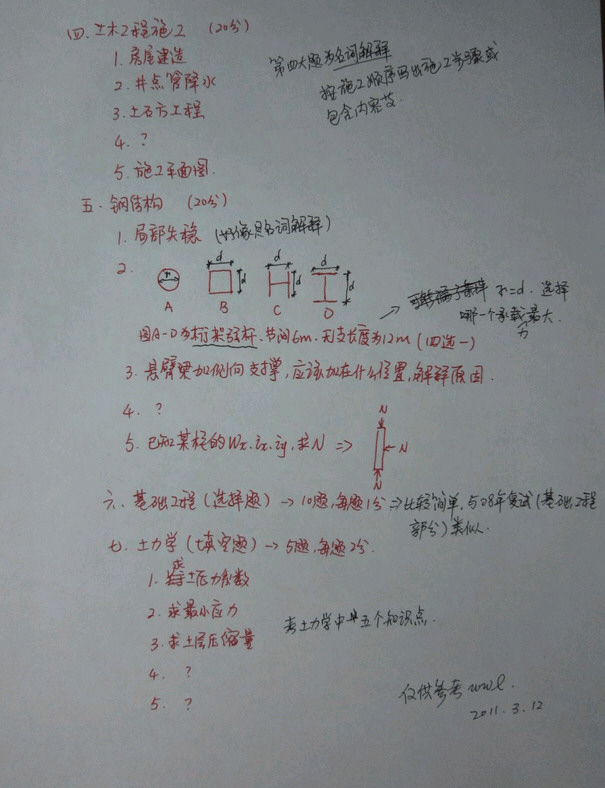 四. 土木工程施工 (20分)
1. 房屋建造
第四大题为名词解释
2. 井点管降水
按施工顺序写出施工步骤或
包含内容等
3. 土石方工程
4. ?
5. 施工平面图.
五. 钢结构 (20分)
1. 局部失稳 (好像是名词解释)
2.
r d d d d d d
A B C D
r=d. 选择
哪一个承载力最大.
图A-D为桁架弦杆. 节间6m. 无支长度为12m (四选一)
3. 悬臂梁加侧向支撑, 应该加在什么位置, 解释原因.
4. ?
5. 已知某柱的Wx. ix. iy, 求N ⇒
N
N
N
六. 基础工程 (选择题) → 10题, 每题1分 ⇒ 比较简单, 与08年复试 (基础工程
部分) 类似.
七. 土力学 (填空题) → 5题, 每题2分.
1. 求土压力系数
2. 求最小应力
3. 求土层压缩量
考土力学中五个知识点.
4. ?
5. ?
仅供参考 wwl.
2011. 3. 12